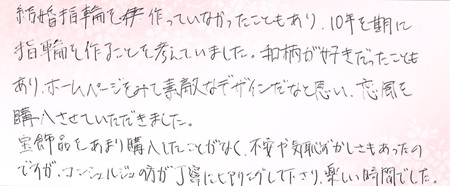 結婚指輪を作っていなかったこともあり、10年を期に
指輪を作ることを考えていました。和柄が好きだったことも
あり、ホームページをみて素敵なデザインだなと思い、恋風を
購入させていただきました。
宝飾品をあまり購入したことがなく、不安や気恥ずかしさもあったの
ですが、コンシェルジュの方が丁寧にヒアリングして下さり、楽しい時間でした。